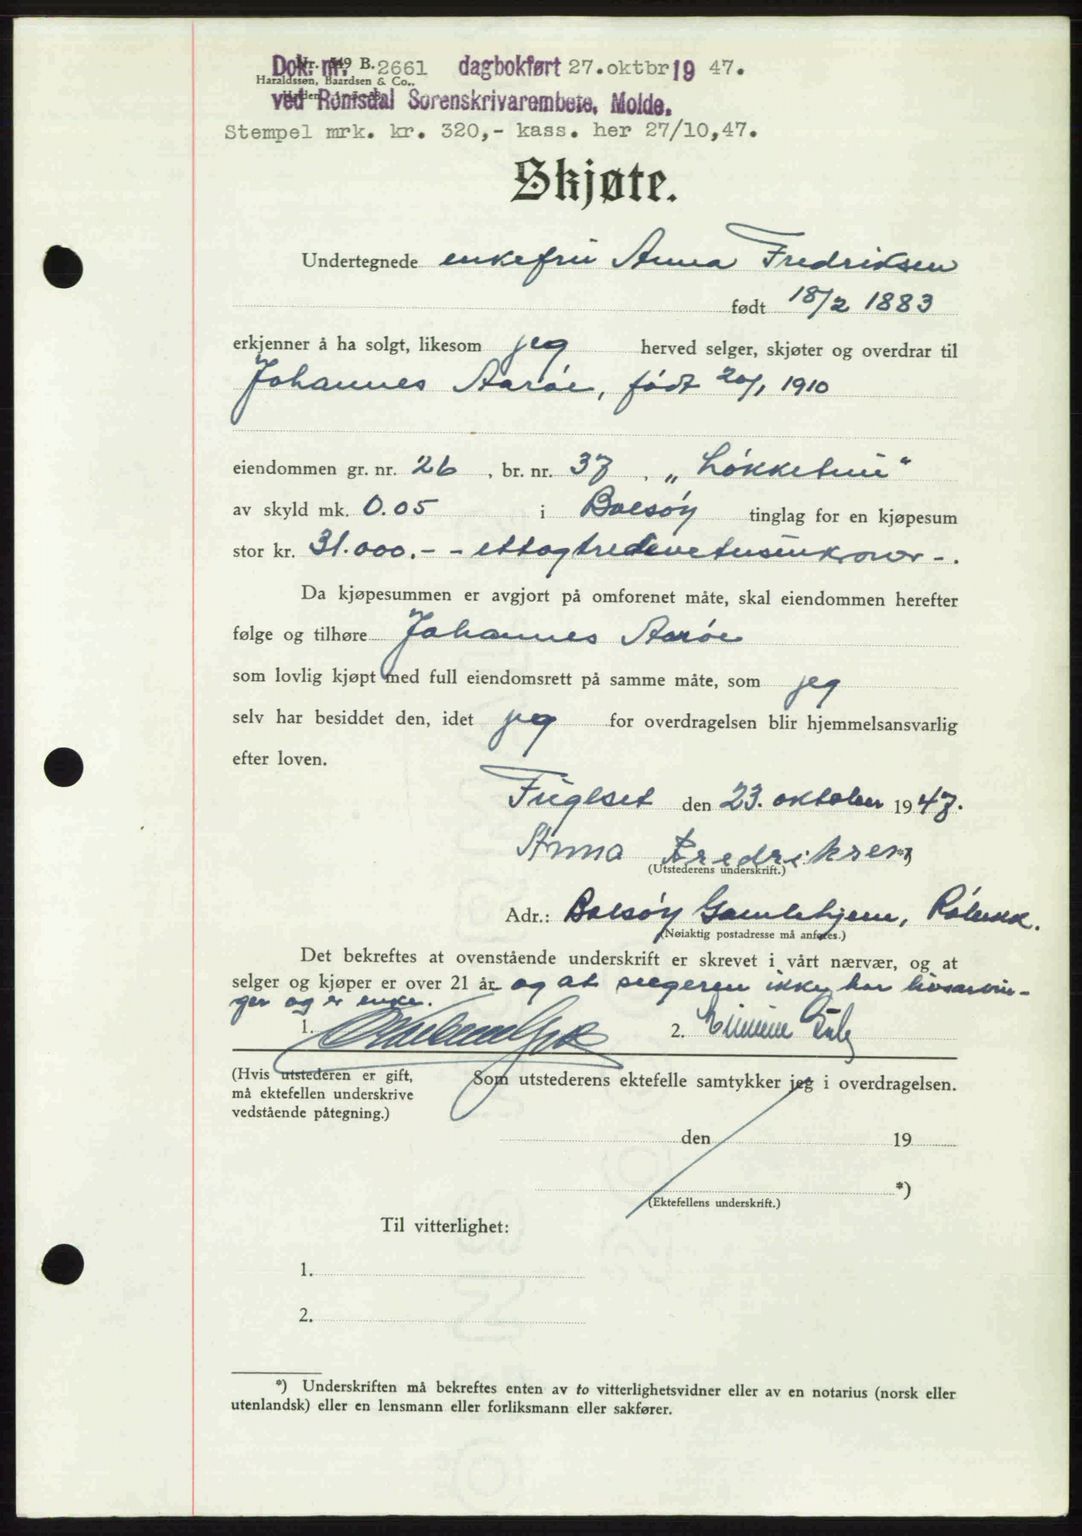 Dok. nr. 2661 dagbokført 27.oktbr 19 47.
Nr. 549 B.
Haraldssen, Baardsen & Co.,
ved Romsdal Sorenskrivarembete, Molde.
Stempel mrk. kr. 320,- kass. her 27/10,47.
Skjøte.
Undertegnede enkefru Anna Fredriksen
født 18/2 1883
erkjenner å ha solgt, likesom jeg herved selger, skjøter og overdrar til
Johannes Aarøe, født 20/1 1910
eiendommen gr. nr. 26, br. nr. 37, „Løkketun“
av skyld mk. 0.05 i Bolsøy tinglag for en kjøpesum
stor kr. 31.000.- - ettogtredevetusenkroner -.
Da kjøpesummen er avgjort på omforenet måte, skal eiendommen herefter
følge og tilhøre Johannes Aarøe
som lovlig kjøpt med full eiendomsrett på samme måte, som jeg
selv har besiddet den, idet jeg for overdragelsen blir hjemmelsansvarlig
efter loven.
Fuglset den 23. oktober 1947.
Anna Fredriksen *)
(Utstederens underskrift.)
Adr.: Bolsøy Gamlehjem, Røbekk.
(Nøiaktig postadresse må anføres.)
Det bekreftes at ovenstående underskrift er skrevet i vårt nærvær, og at
selger og kjøper er over 21 år og at selgeren ikke har livsarvin-
ger og er enke.
1. 2.
(Hvis utstederen er gift,
må ektefellen underskrive
vedstående påtegning.)
Som utstederens ektefelle samtykker jeg i overdragelsen.
den 19
*)
(Ektefellens underskrift.)
Til vitterlighet:
1.
2.
*) Underskriften må bekreftes enten av to vitterlighetsvidner eller av en notarius (norsk eller
utenlandsk) eller en lensmann eller forliksmann eller sakfører.